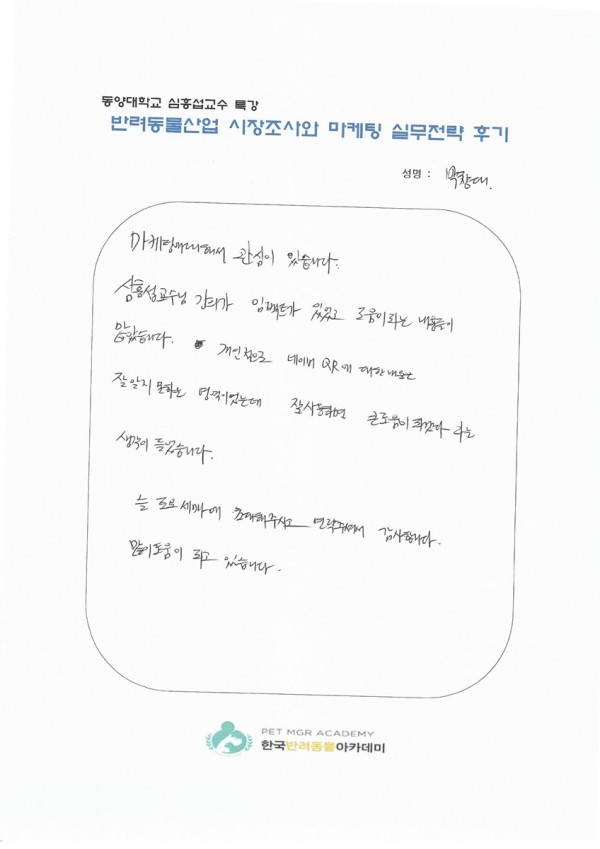 동양대학교 심흥섭교수 특강
반려동물산업 시장조사와 마케팅 실무전략 후기
성명 : 박창대.
마케팅에대해서 관심이 있습니다.
심흥섭교수님 강의가 임팩트가 있었고 도움이되는 내용들이
많았습니다. 개인적으로 네이버 QR에 대한내용은
잘알지 못하는 영역이었는데 잘사용하면 큰도움이 되겠다 라는
생각이 들었습니다.
늘 무료 세미나에 초대해주시고 연락주셔서 감사합니다.
많이도움이 되고 있습니다.
PET MGR ACADEMY
한국반려동물아카데미